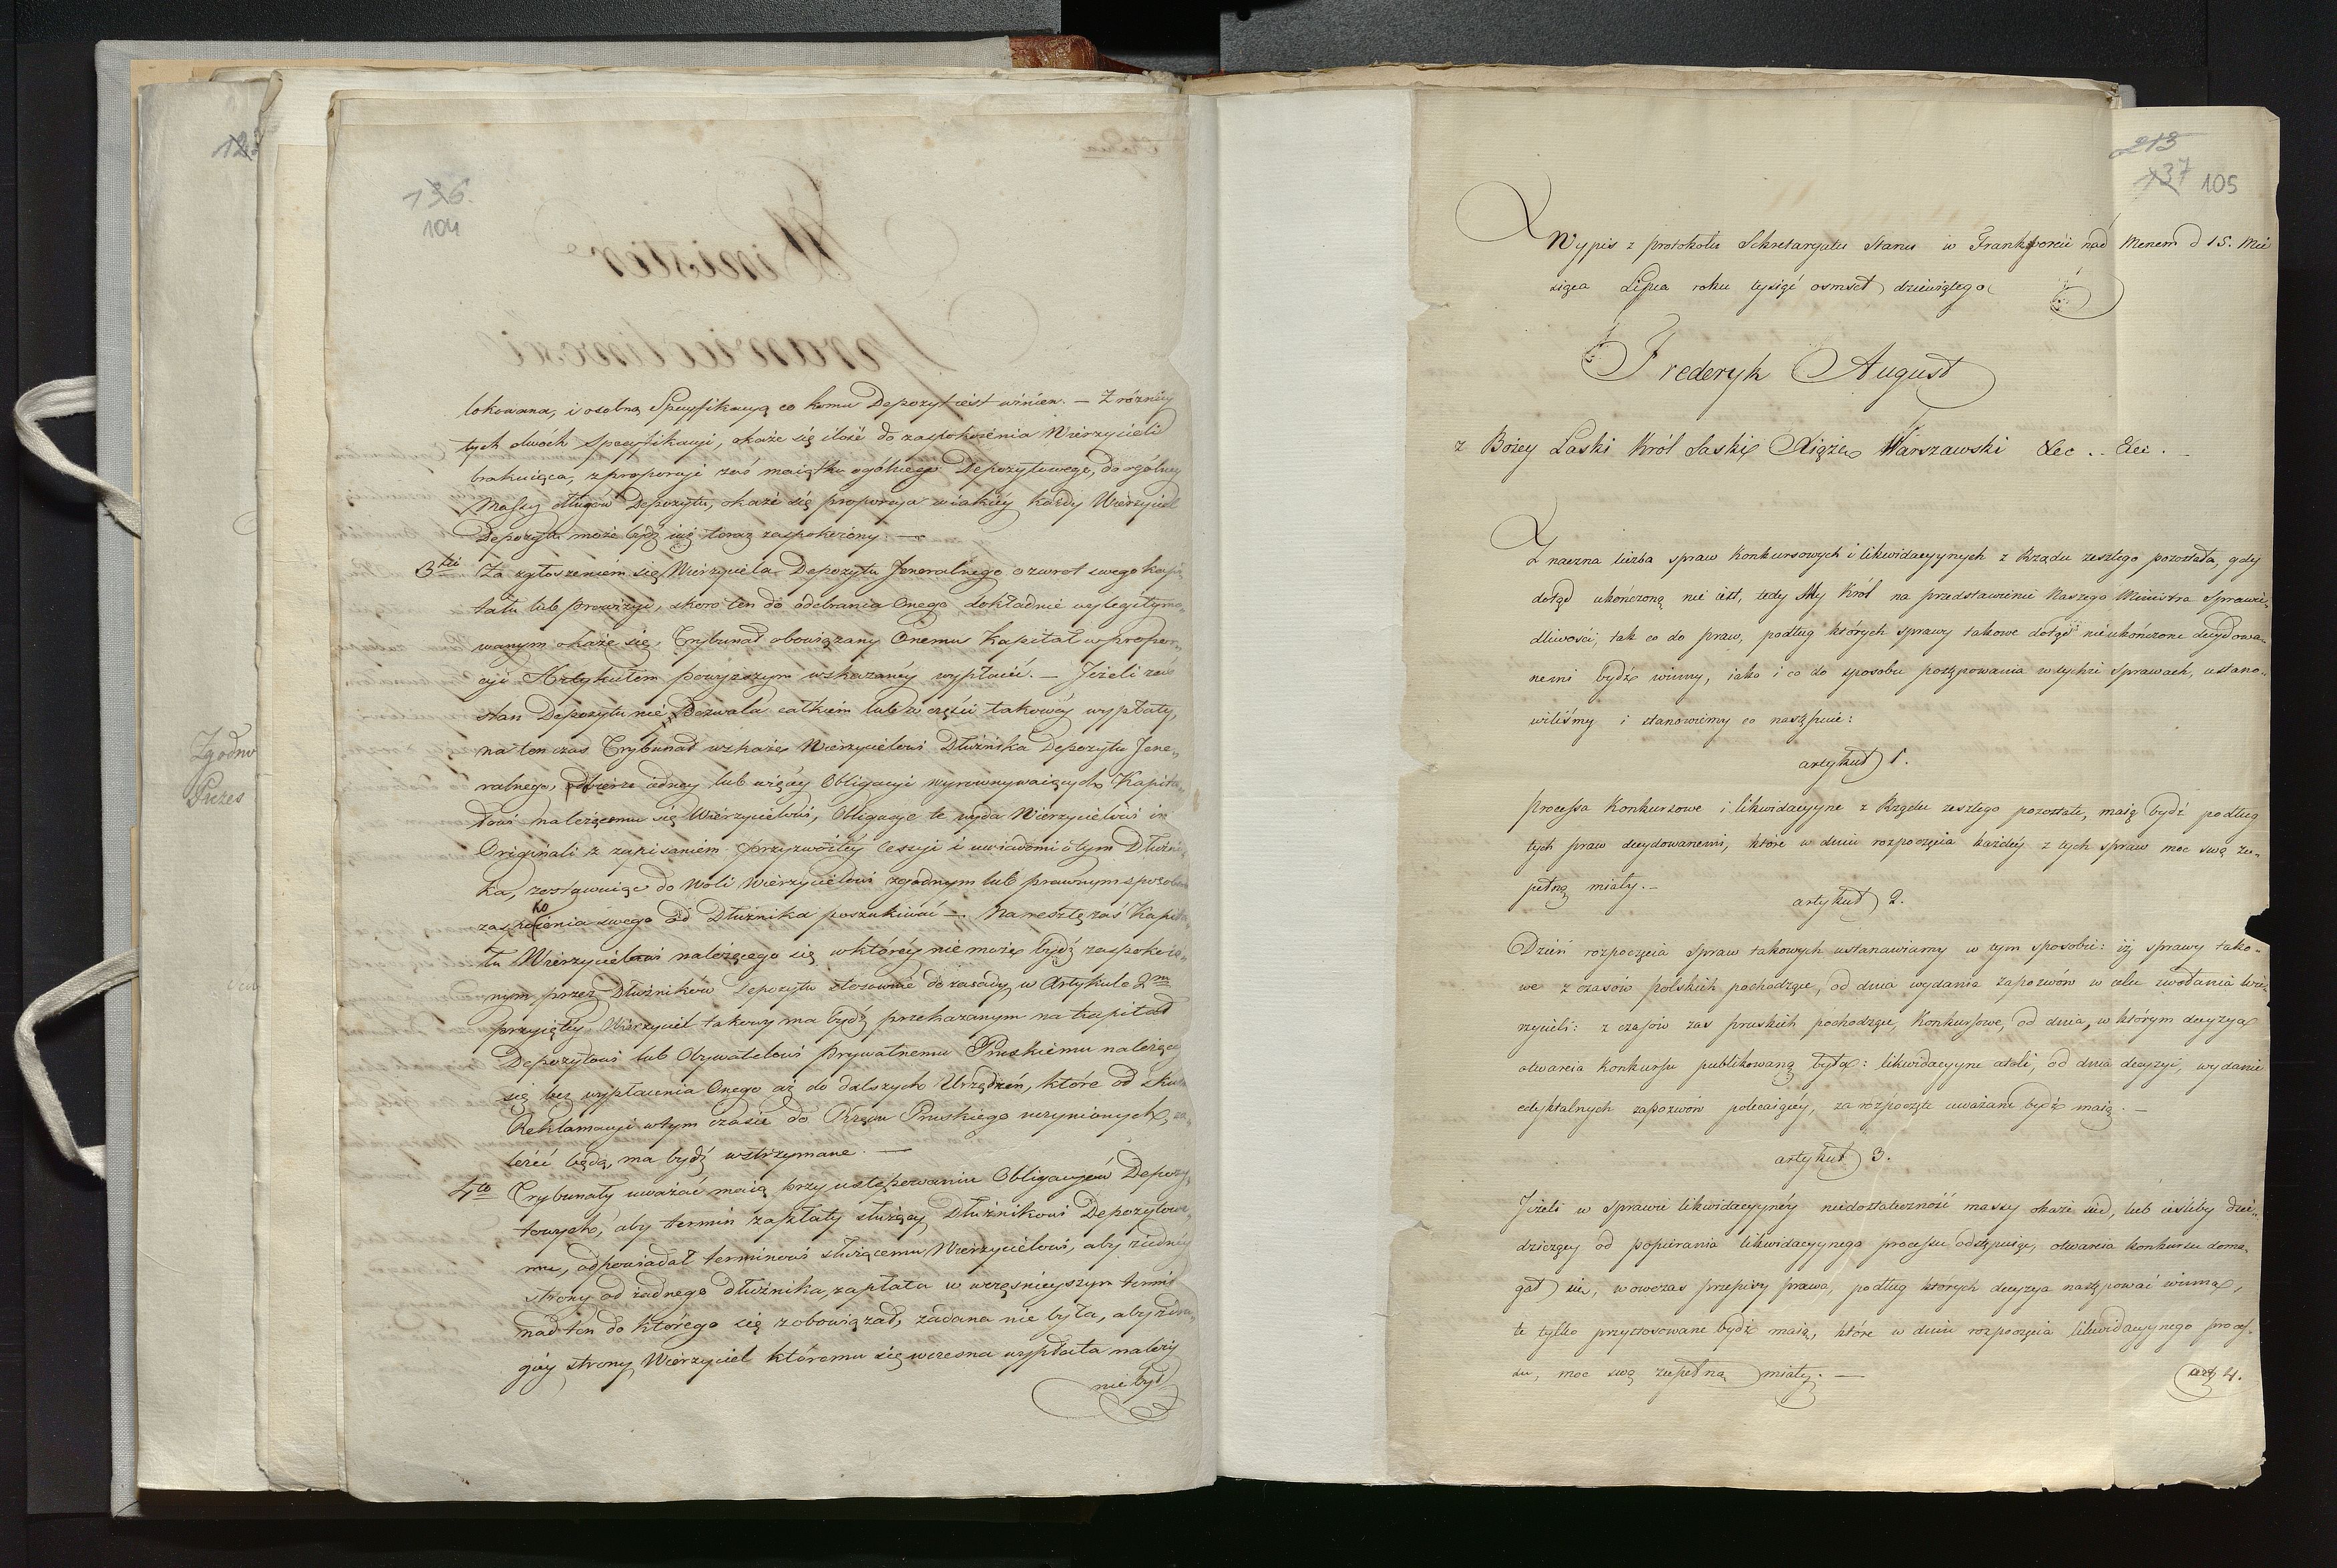 136.
104
lokowana, i osobną Specyfikacyą co komu Depozyt iest winien. — Z róznicy
tych dwóch Specyfikacyi, okaże się ilość do zaspokoienia Wierzycieli
brakuiąca, z proporcyi zaś maiątku ogólnego Depozytowego, do ogólney
Massy długow Depozytu, okaże się proporcya w iakiéy każdy Wierzyciel
Depozytu może bydź iuż teraz zaspokoiony. —
3tio Za zgłoszeniem się Wierzyciela Depozytu Jeneralnego o zwrot swego kapi-
tału lub prowizyi, skoro ten do odebrania Onego dokładnie wylegitymo-
wanym okaże się, Trybunał obowiązany Onemu Kapitał w propor-
cyi Artykułem powyższym wskazanéy wypłacić. — Jeżeli zaś
stan Depozytu nie dozwala całkiem lub w części takowéy wypłaty,
na ten czas Trybunał wskaże Wierzycielowi Dłużnika Depozytu Jene-
ralnego, odbierze iedney lub więcéy Obligacyi wyrownywaiących Kapita-
łowi należącemu się Wierzycielowi, Obligacye te wyda Wierzycielowi in
Originali z zapisaniem przyzwoitéy Cessyi i uwiadomi o tym Dłużni-
ka, zostawuiąc do Woli Wierzycielowi zgodnym lub prawnym sposobem
zaspokoienia swego od Dłużnika poszukiwać — Na resztę zaś Kapita-
łu Wierzycielowi należącego się w któréy nie może bydź zaspokoio-
nym przez Dłużników Depozytu stosownie do zasady w Artykule 2m
przyiętéy Wierzyciel takowy ma bydź przekazanym na Kapitał
Depozytowi lub Obywatelowi prywatnemu Pruskiemu należący
się bez wypłacenia Onego aż do dalszych Urządzeń, które od skutku
Reklamacyi w tym czasie do Rządu Pruskiego uczynionych, za-
leżeć będą, ma bydź wstrzymane. —
4to Trybunały uważać maią przy ustępowaniu Obligacyów Depozy-
towych, aby termin zapłaty służący Dłużnikowi Depozytowe-
mu, odpowiadał terminowi służącemu Wierzycielowi, aby z iednéy
strony od żadnego dłużnika, zapłata w wcześnieyszym termi-
nad ten do którego się zobowiązał, żądana nie była, aby z dru-
giéy strony Wierzyciel któremu się wczesna wypłata należy
nie był
Zgodno
Prezes
213
137 105
Wypis z protokołu Sekretaryatu Stanu w Frankforcie nad Menem d 15. Mie
siąca Lipca roku tysiąć osmset dziewiątego
Frederyk August
z Bożey Łaski Król Saski Xiąże Warszawski &c .. &c. —
Znaczna liczba spraw konkursowych i likwidacyynych z Rządu zeszłego pozostała, gdy
dotąd ukończoną nie iest, tedy My Król na przedstawienie Naszego Ministra Sprawie-
dliwości, tak co do praw, podług których sprawy takowe dotąd nieukończone decydowa-
nemi bydź winny, iako i co do sposobu postępowania w tychże sprawach, ustano-
wiliśmy i stanowiemy co następuie:
artykuł 1.
Processa Konkursowe i likwidacyyne z Rządu zeszłego pozostałe, maią bydź podług
tych praw decydowanemi, które w dniu rozpoczęcia każdéy z tych spraw moc swą zu-
pełną miały. —
artykuł 2.
Dzień rozpoczęcia Spraw takowych ustanawiamy w tym sposobie: iż sprawy tako-
we z czasów polskich pochodzące, od dnia wydania zapozwów w celu zwołania wie-
rzycieli: z czasów zas pruskich pochodzące, Konkursowe, od dnia, w którym decyzya
otwarcia Konkursu publikowaną była: likwidacyyne atoli, od dnia decyzyi, wydanie
edyktalnych zapozwów polecaiącéy, za rozpoczęte uważane bydź maią. —
artykuł 3.
Jeżeli w sprawie likwidacyynéy niedostateczność massy okaże się, lub ieśliby dzie-
dziczący od popierania likwidacyynego processu odstępuiąc, otwarcia konkursu doma-
gał się, wowczas przepisy prawa, podług ktorych decyzya następować winna,
te tylko przystosowane bydź maią, które w dniu rozpoczęcia likwidacyynego proces-
su, moc swą zupełną miały. —
art 4.